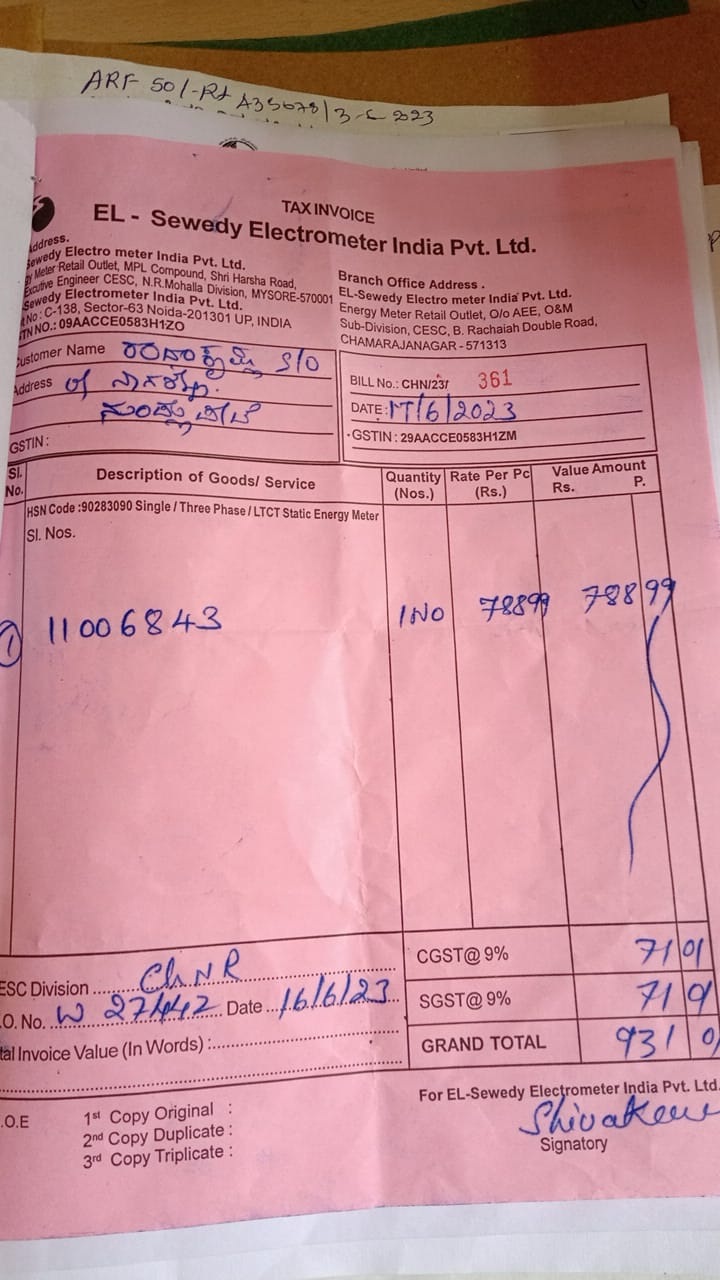 ARF 50/-Rt A35678/3-6-2023
TAX INVOICE
EL - Sewedy Electrometer India Pvt. Ltd.
Address.
Sewedy Electro meter India Pvt. Ltd.
Meter Retail Outlet, MPL Compound, Shri Harsha Road,
Executive Engineer CESC, N.R.Mohalla Division, MYSORE-570001
Sewedy Electrometer India Pvt. Ltd.
No : C-138, Sector-63 Noida-201301 UP, INDIA
TN NO.: 09AACCE0583H1ZO
Branch Office Address .
EL-Sewedy Electro meter India Pvt. Ltd.
Energy Meter Retail Outlet, O/o AEE, O&M
Sub-Division, CESC, B. Rachaiah Double Road,
CHAMARAJANAGAR - 571313
Customer Name S/O
Address of
GSTIN :
BILL No.: CHN/23/ 361
DATE: 17/6/2023
GSTIN : 29AACCE0583H1ZM
Sl. No. Description of Goods/ Service Quantity (Nos.) Rate Per Pc (Rs.) Value Amount Rs. P.
HSN Code :90283090 Single / Three Phase / LTCT Static Energy Meter
Sl. Nos.
1 11006843 1 No 78899 788 99
CGST@ 9% 71 01
SGST@ 9% 71 01
GRAND TOTAL 931 01
ESC Division ChNR
.O. No. W 27442 Date 16/6/23
tal Invoice Value (In Words) :
For EL-Sewedy Electrometer India Pvt. Ltd.
.O.E
1st Copy Original :
2nd Copy Duplicate :
3rd Copy Triplicate :
Signatory